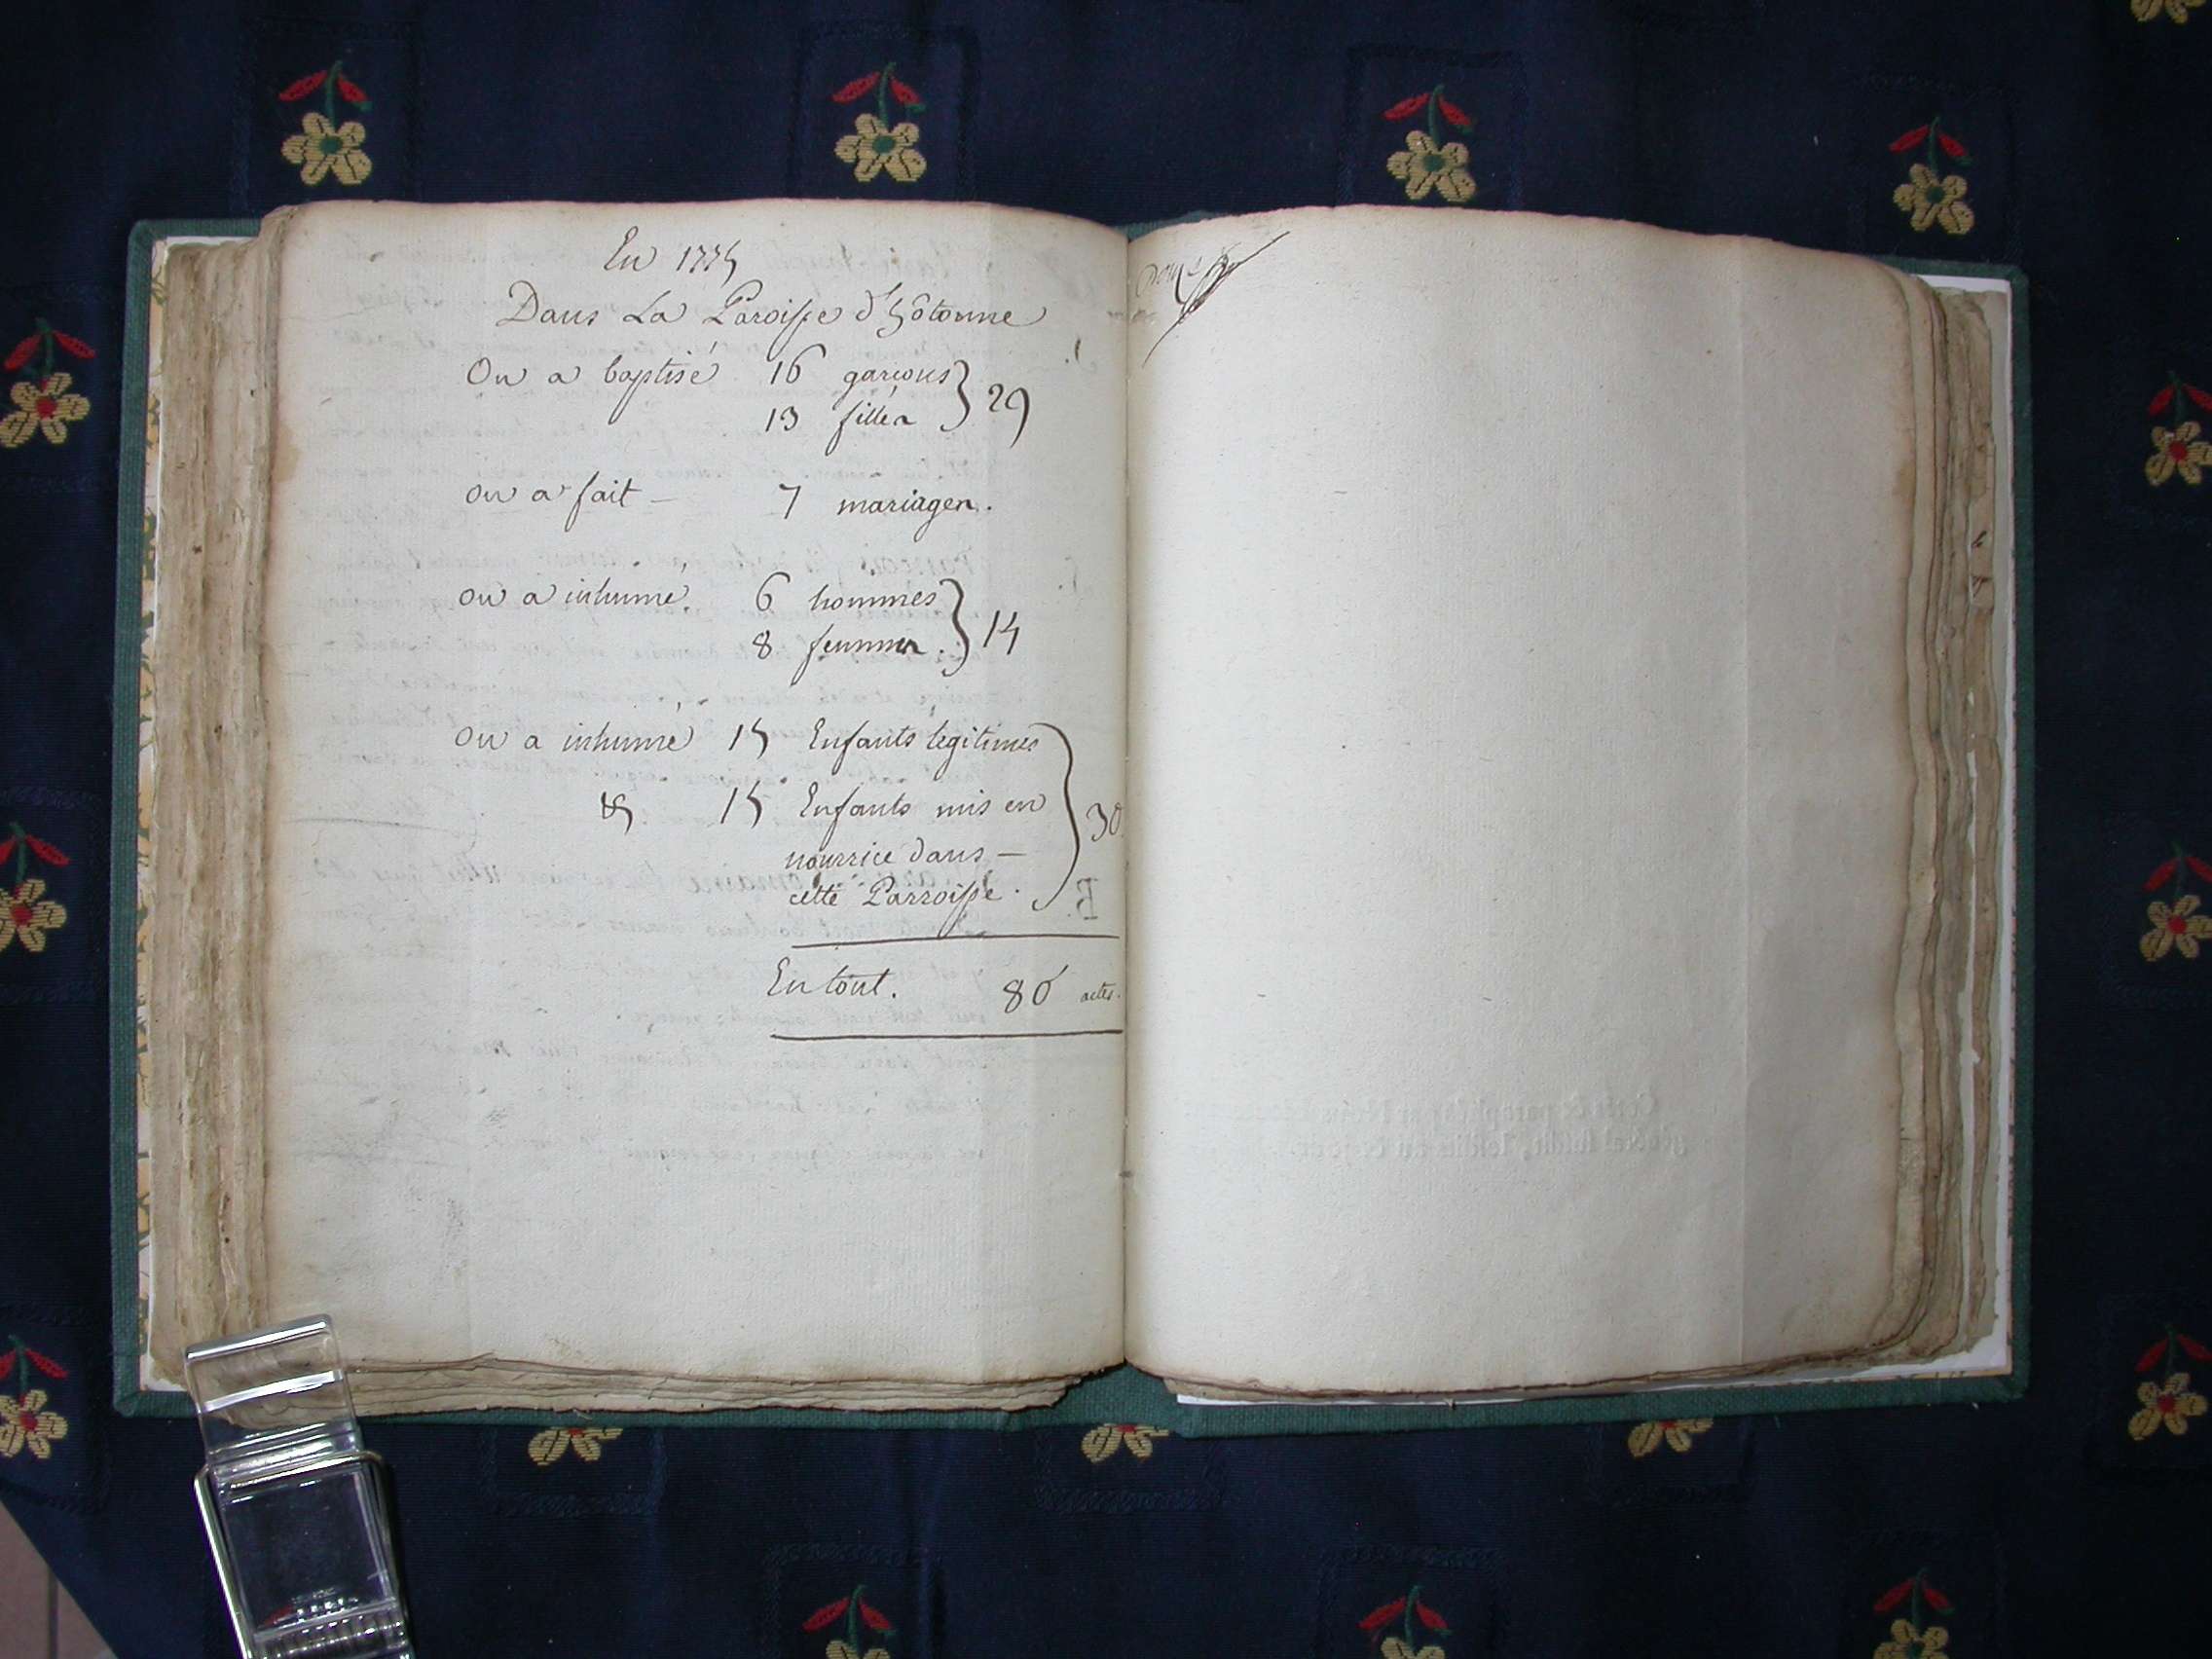 En 1775
Dans La Paroisse d'hôtonne
On a baptisé 16 garçons } 29
13 filles
on a fait — 7 mariages.
on a inhumé. 6 hommes } 14
8 femmes.
on a inhumé 15 Enfants legitimes
& 15 Enfants mis en } 30.
nourrice dans —
cette Parroisse.
En tout. 80 actes.